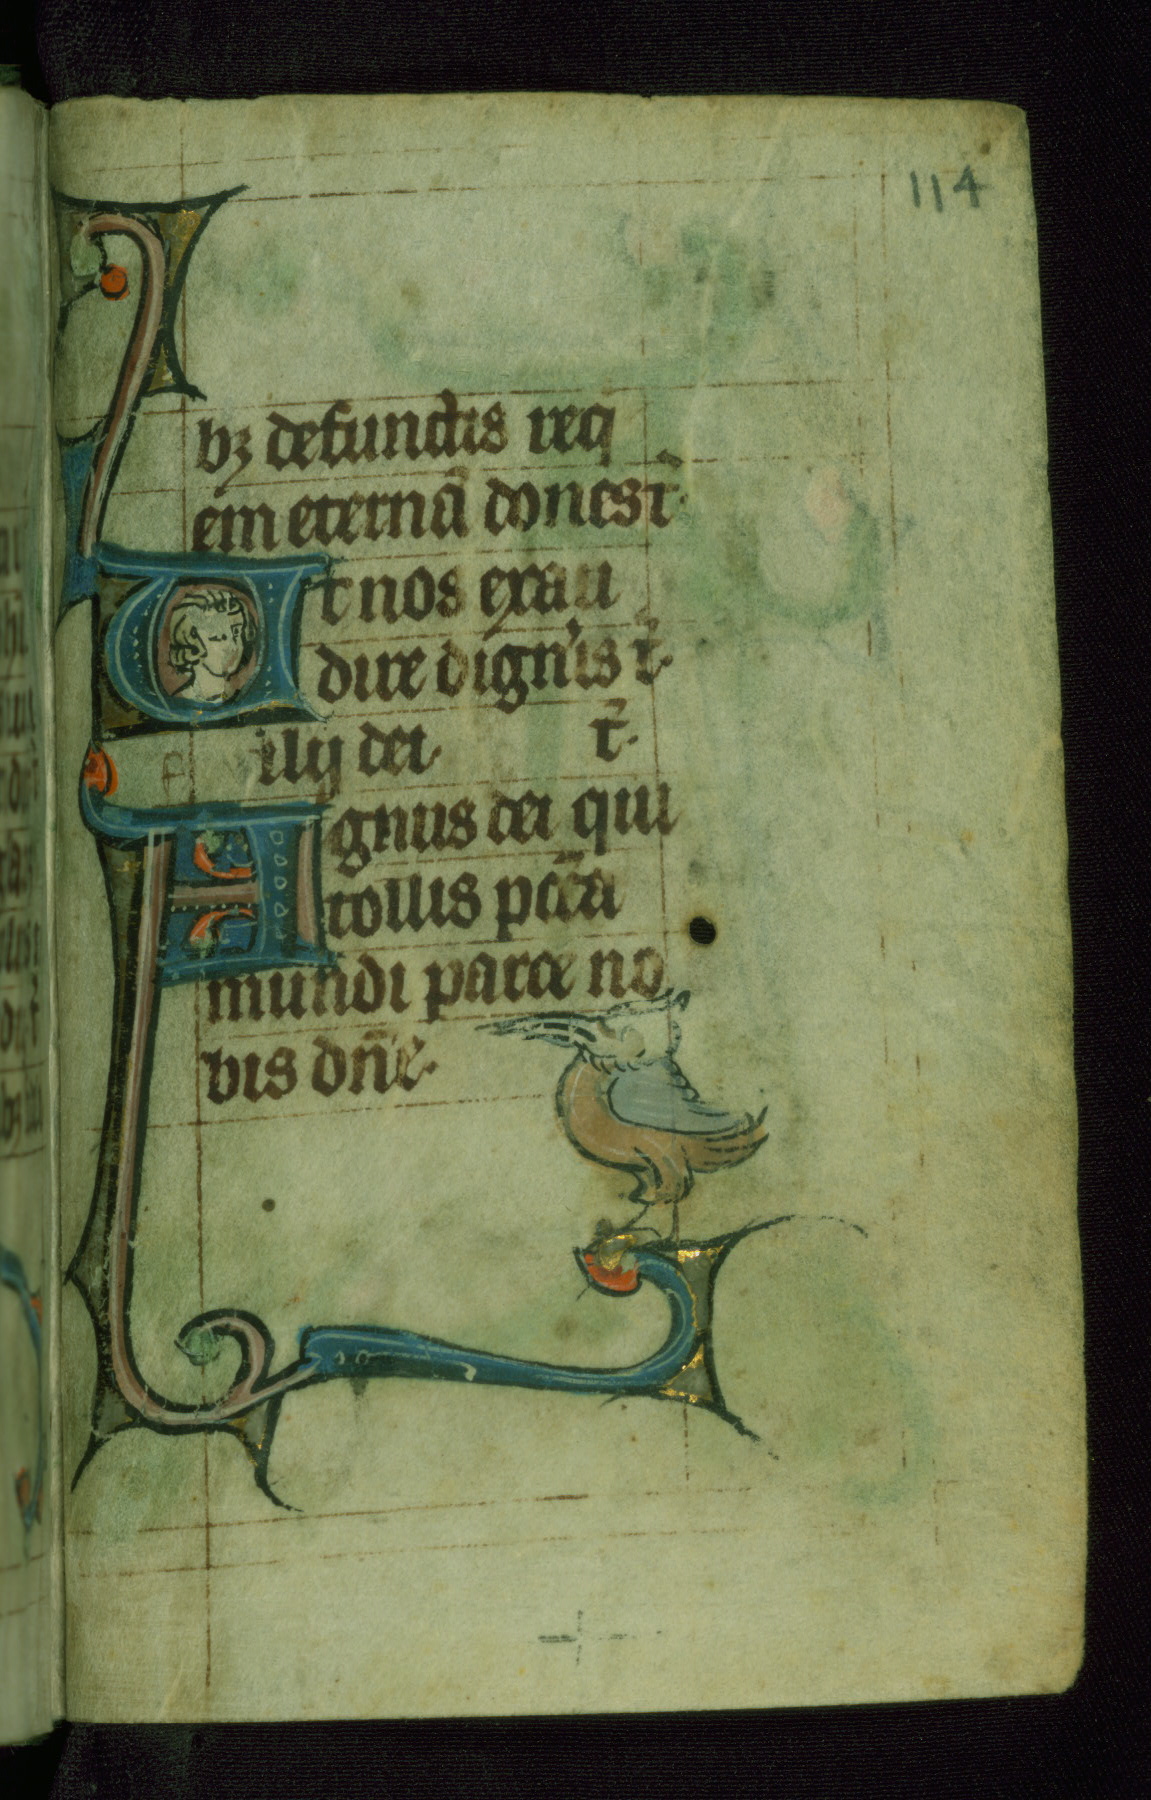 114
bꝫ defunctis req
em eternā dones t̄.
Ut nos exau
dire digneris t̄.
ilij dei. t̄.
Agnus dei qui
tollis pcc̄a
mundi parce no
bis dn̄e.